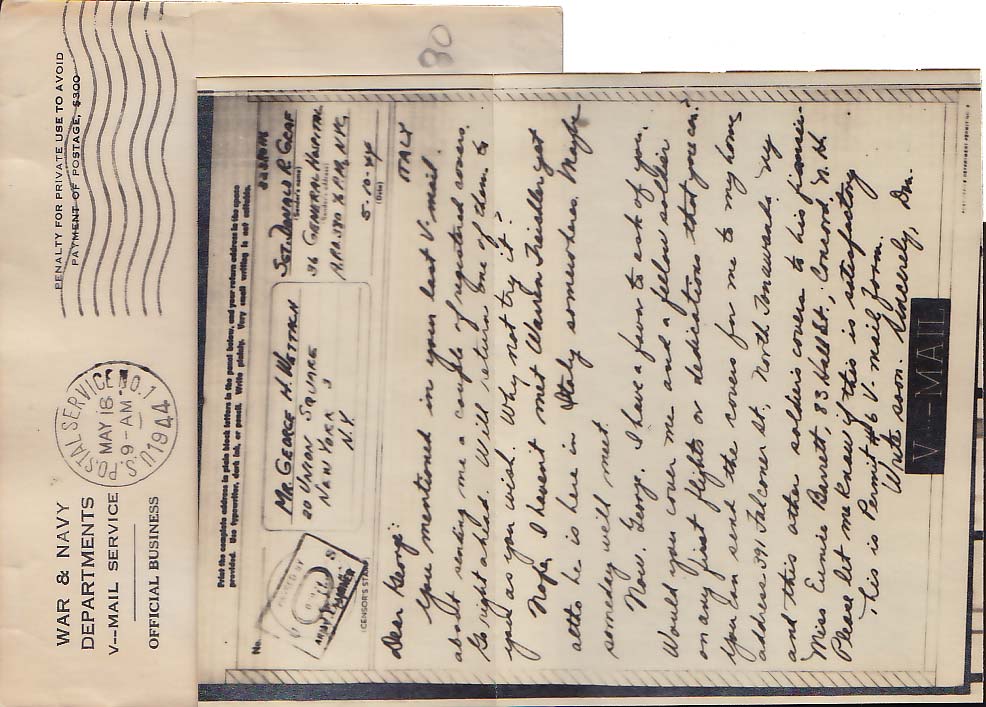 WAR & NAVY
DEPARTMENTS
V--MAIL SERVICE
OFFICIAL BUSINESS
U.S. POSTAL SERVICE NO. 1
MAY 18
9-AM
1944
PENALTY FOR PRIVATE USE TO AVOID
PAYMENT OF POSTAGE, $300
80
Print the complete address in plain block letters in the panel below, and your return address in the space
provided. Use typewriter, dark ink, or pencil. Write plainly. Very small writing is not suitable.
No.
PASSED BY
ARMY EXAMINER
(CENSOR'S STAMP)
MR. GEORGE H. WETTACH
20 UNION SQUARE
NEW YORK 3
N.Y.
SGT. DONALD R. GEAF
(Sender's name)
36 GENERAL HOSPITAL
(Sender's address)
A.P.O. 380 % P.M. N.Y.C.
5-10-44
(Date)
ITALY
Dear George:
You mentioned in your last V-mail
about sending me a couple of registered covers.
Go right ahead. Will return one of them to
you as you wish. Why not try it?
Nope, I havent met Warren Freialler yet
altho he is here in Italy somewheres. Maybe
someday we'll meet.
Now, George, I have a favor to ask of you.
Would you cover me and a fellow soldier
on any first flights or dedications that you can?
You can send the covers for me to my home
address 391 Falconer St., North Tonawanda N.Y.
and this other soldier's covers to his fiancee-
Miss Eunice Barrett, 83 Hall St., Concord, N.H.
Please let me know if this is satisfactory
This is Permit #6 V-mail form.
Write soon. Sincerely, Don.
V--MAIL